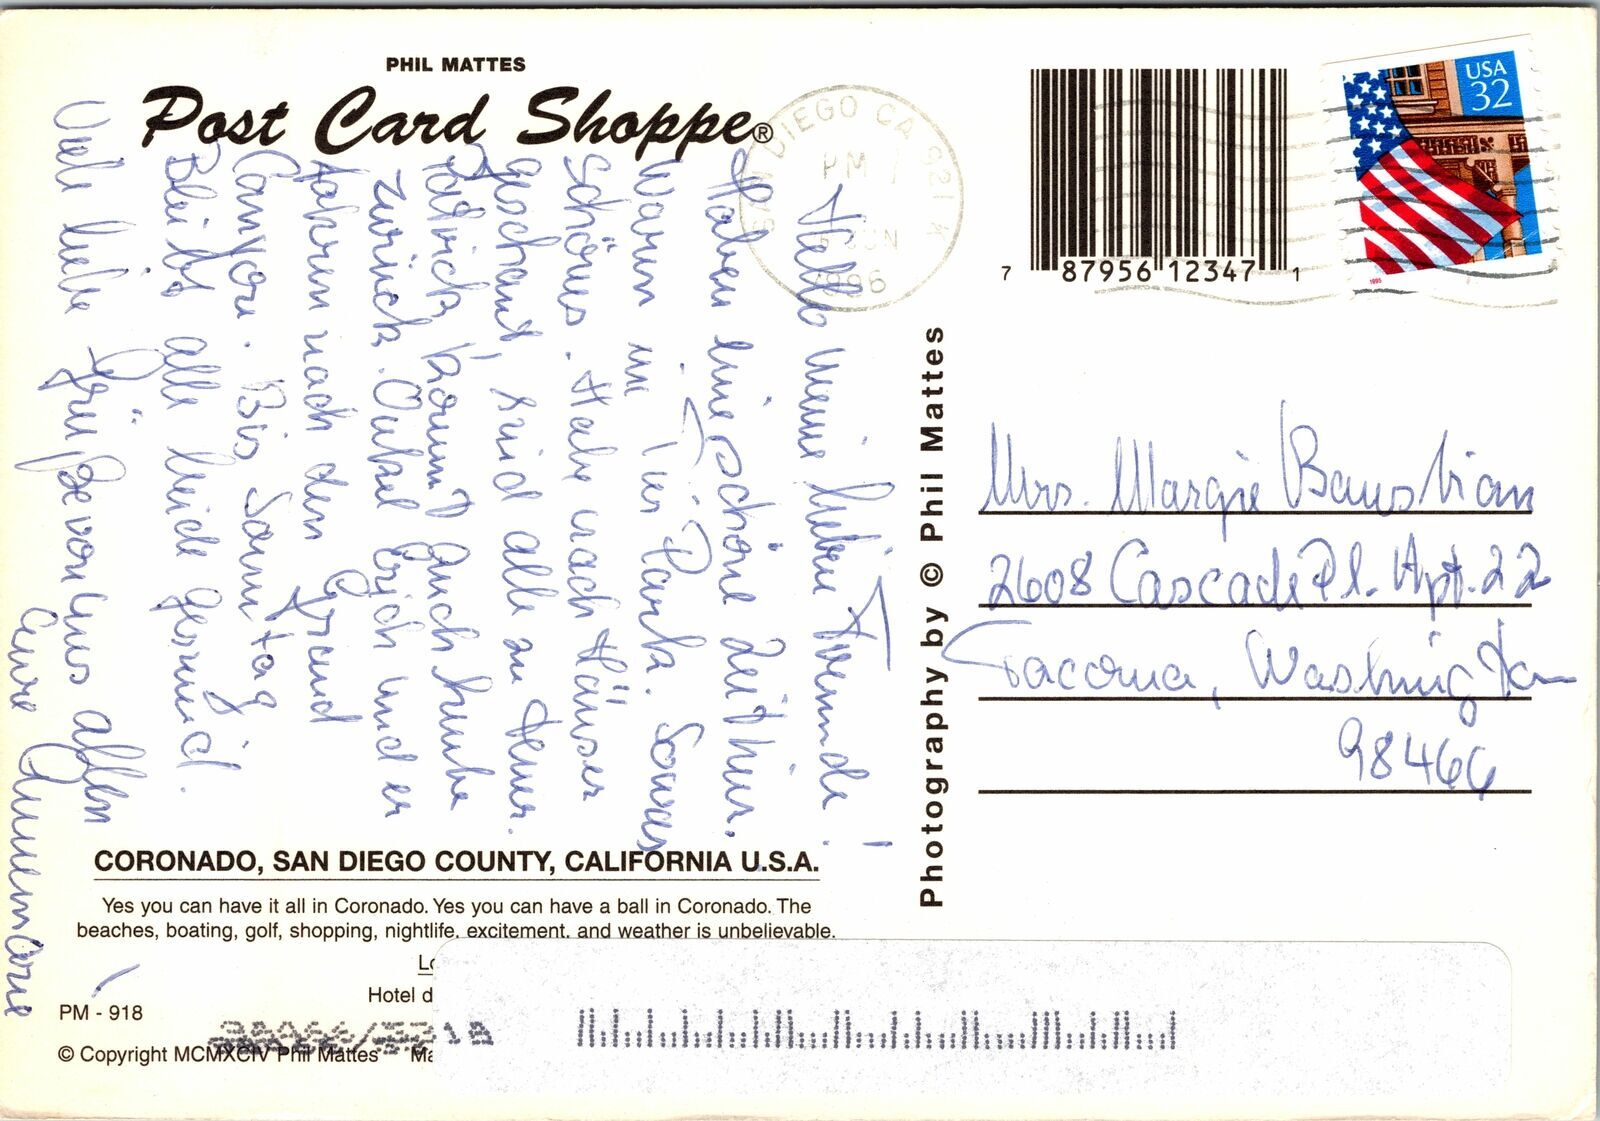 PHIL MATTES
Post Card Shoppe®
Hello meine lieben Freunde!
Haben eine schöne Zeit hier.
Waren im Tier Park. Sonst
schönes. Habe nach Hause
geschant, sind alle zu Heim.
Patrick kommt auch heute
zurück. Onkel Erich und er
fahren nach den Grand
Canyon. Bis Sonntag
Bleibt alle beide gesund.
Viele liebe Grüße von uns allen
Eure Annemarie
SAN DIEGO CA 921
PM
JUN
1996
7 87956 12347 1
USA
32
1995
Photography by © Phil Mattes
Mrs. Margie Baustian
2608 Cascade Pl. Apt. 22
Tacoma, Washington
98466
CORONADO, SAN DIEGO COUNTY, CALIFORNIA U.S.A.
Yes you can have it all in Coronado. Yes you can have a ball in Coronado. The
beaches, boating, golf, shopping, nightlife, excitement, and weather is unbelievable.
Lo
Hotel d
PM - 918
© Copyright MCMXCIV Phil Mattes Ma